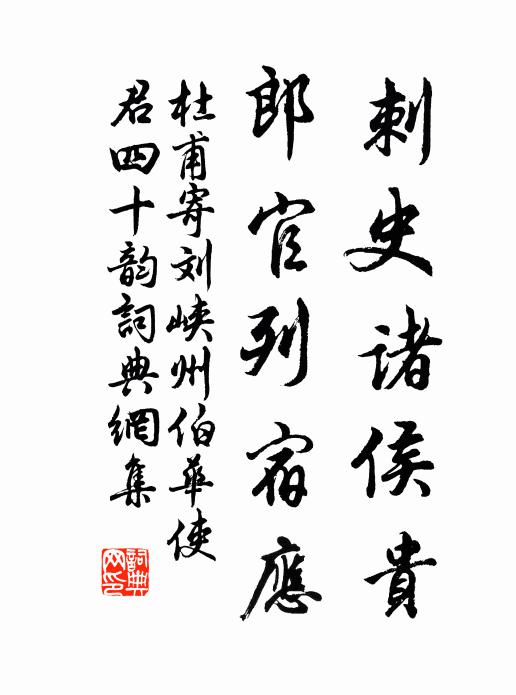 刺史諸侯貴
郎官列宿應
杜甫寄刘峡州伯華使
君四十韵詞典網集
詞典
网印